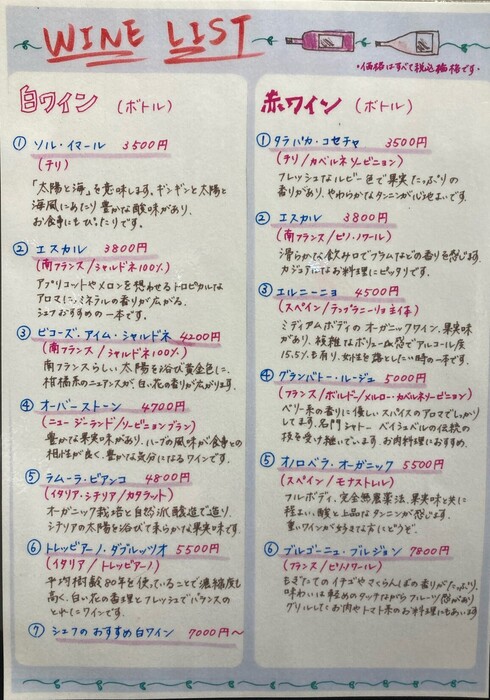 WINE LIST
・価格はすべて税込価格です・
白ワイン (ボトル)
① ソル・イマール 3500円
(チリ)
「太陽と海」を意味します。ギンギンと太陽と
海風にあたり豊かな酸味があり、
お食事にもぴったりです。
② エスカル 3800円
(南フランス/シャルドネ100%)
アプリコットやメロンを想わせるトロピカルな
アロマに、ミネラルの香りが広がる。
シェフおすすめの一本です。
③ ビコーズ・アイム・シャルドネ 4200円
(南フランス/シャルドネ100%)
南フランスらしい、太陽を浴び黄金色に、
柑橘系のニュアンスが、白い花の香りが広がります。
④ オーバーストーン 4700円
(ニュージーランド/ソービニョンブラン)
豊かな果実味があり、ハーブの風味が食事との
相性が良く、豊かな気分になるワインです。
⑤ ラムーラ・ビアンコ 4800円
(イタリア・シチリア/カタラット)
オーガニック栽培と自然派醸造で造り、
シチリアの太陽を浴びて柔らかな果実味です。
⑥ トレッビアーノ・ダブルッツオ 5500円
(イタリア/トレッビアーノ)
平均樹齢80年を使っていることで濃縮度も
高く、白い花の香りとフレッシュでバランスの
とれたワインです。
⑦ シェフのおすすめ白ワイン 7000円~
赤ワイン (ボトル)
① タラパカ・コセチャ 3500円
(チリ/カベルネソービニョン)
フレッシュなルビー色で果実たっぷりの
香りがあり、やわらかなタンニンが心地よいです。
② エスカル 3800円
(南フランス/ピノ・ノワール)
滑らかな飲み口でプラムなどの香りを感じます。
カジュアルなお料理にピッタリです。
③ エルニーニョ 4500円
(スペイン/テンプラニーリョ主体)
ミディアムボディのオーガニックワイン。果実味
があり、複雑なボリューム感でアルコール度
15.5%も有り、女性を落としたい時の一本です。
④ グランバトー・ルージュ 5000円
(フランス/ボルドー/メルロー・カベルネソービニョン)
ベリー系の香りに優しいスパイスのアロマでしっかり
してます。名門シャトー ベイシュベルの伝統の
技を受け継いでいます。お肉料理におすすめ。
⑤ オノロベラ・オーガニック 5500円
(スペイン/モナストレル)
フルボディ、完全無農薬法、果実味と共に
程よい酸と上品なタンニンが感じます。
重いワインが好きな方にどうぞ。
⑥ ブルゴーニュ・ブレジョン 7800円
(フランス/ピノノワール)
もぎたてのイチゴやさくらんぼの香りがたっぷり。
味わいは軽めのタッチながらフルーツ感があり
グリルしたお肉やトマト系のお料理にもあいます。